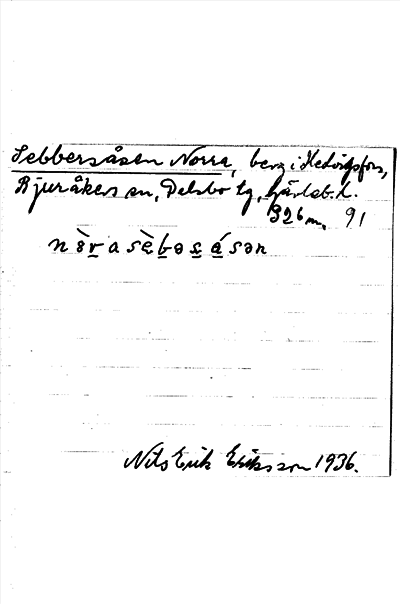 Sebbersåsen Norra, berg i Hedvigsfors,
Bjuråkers sn, Delsbo tg, Gävleb. l.
326 m. 91
nòrasèbəsásən
Nils Erik Eriksson 1936.